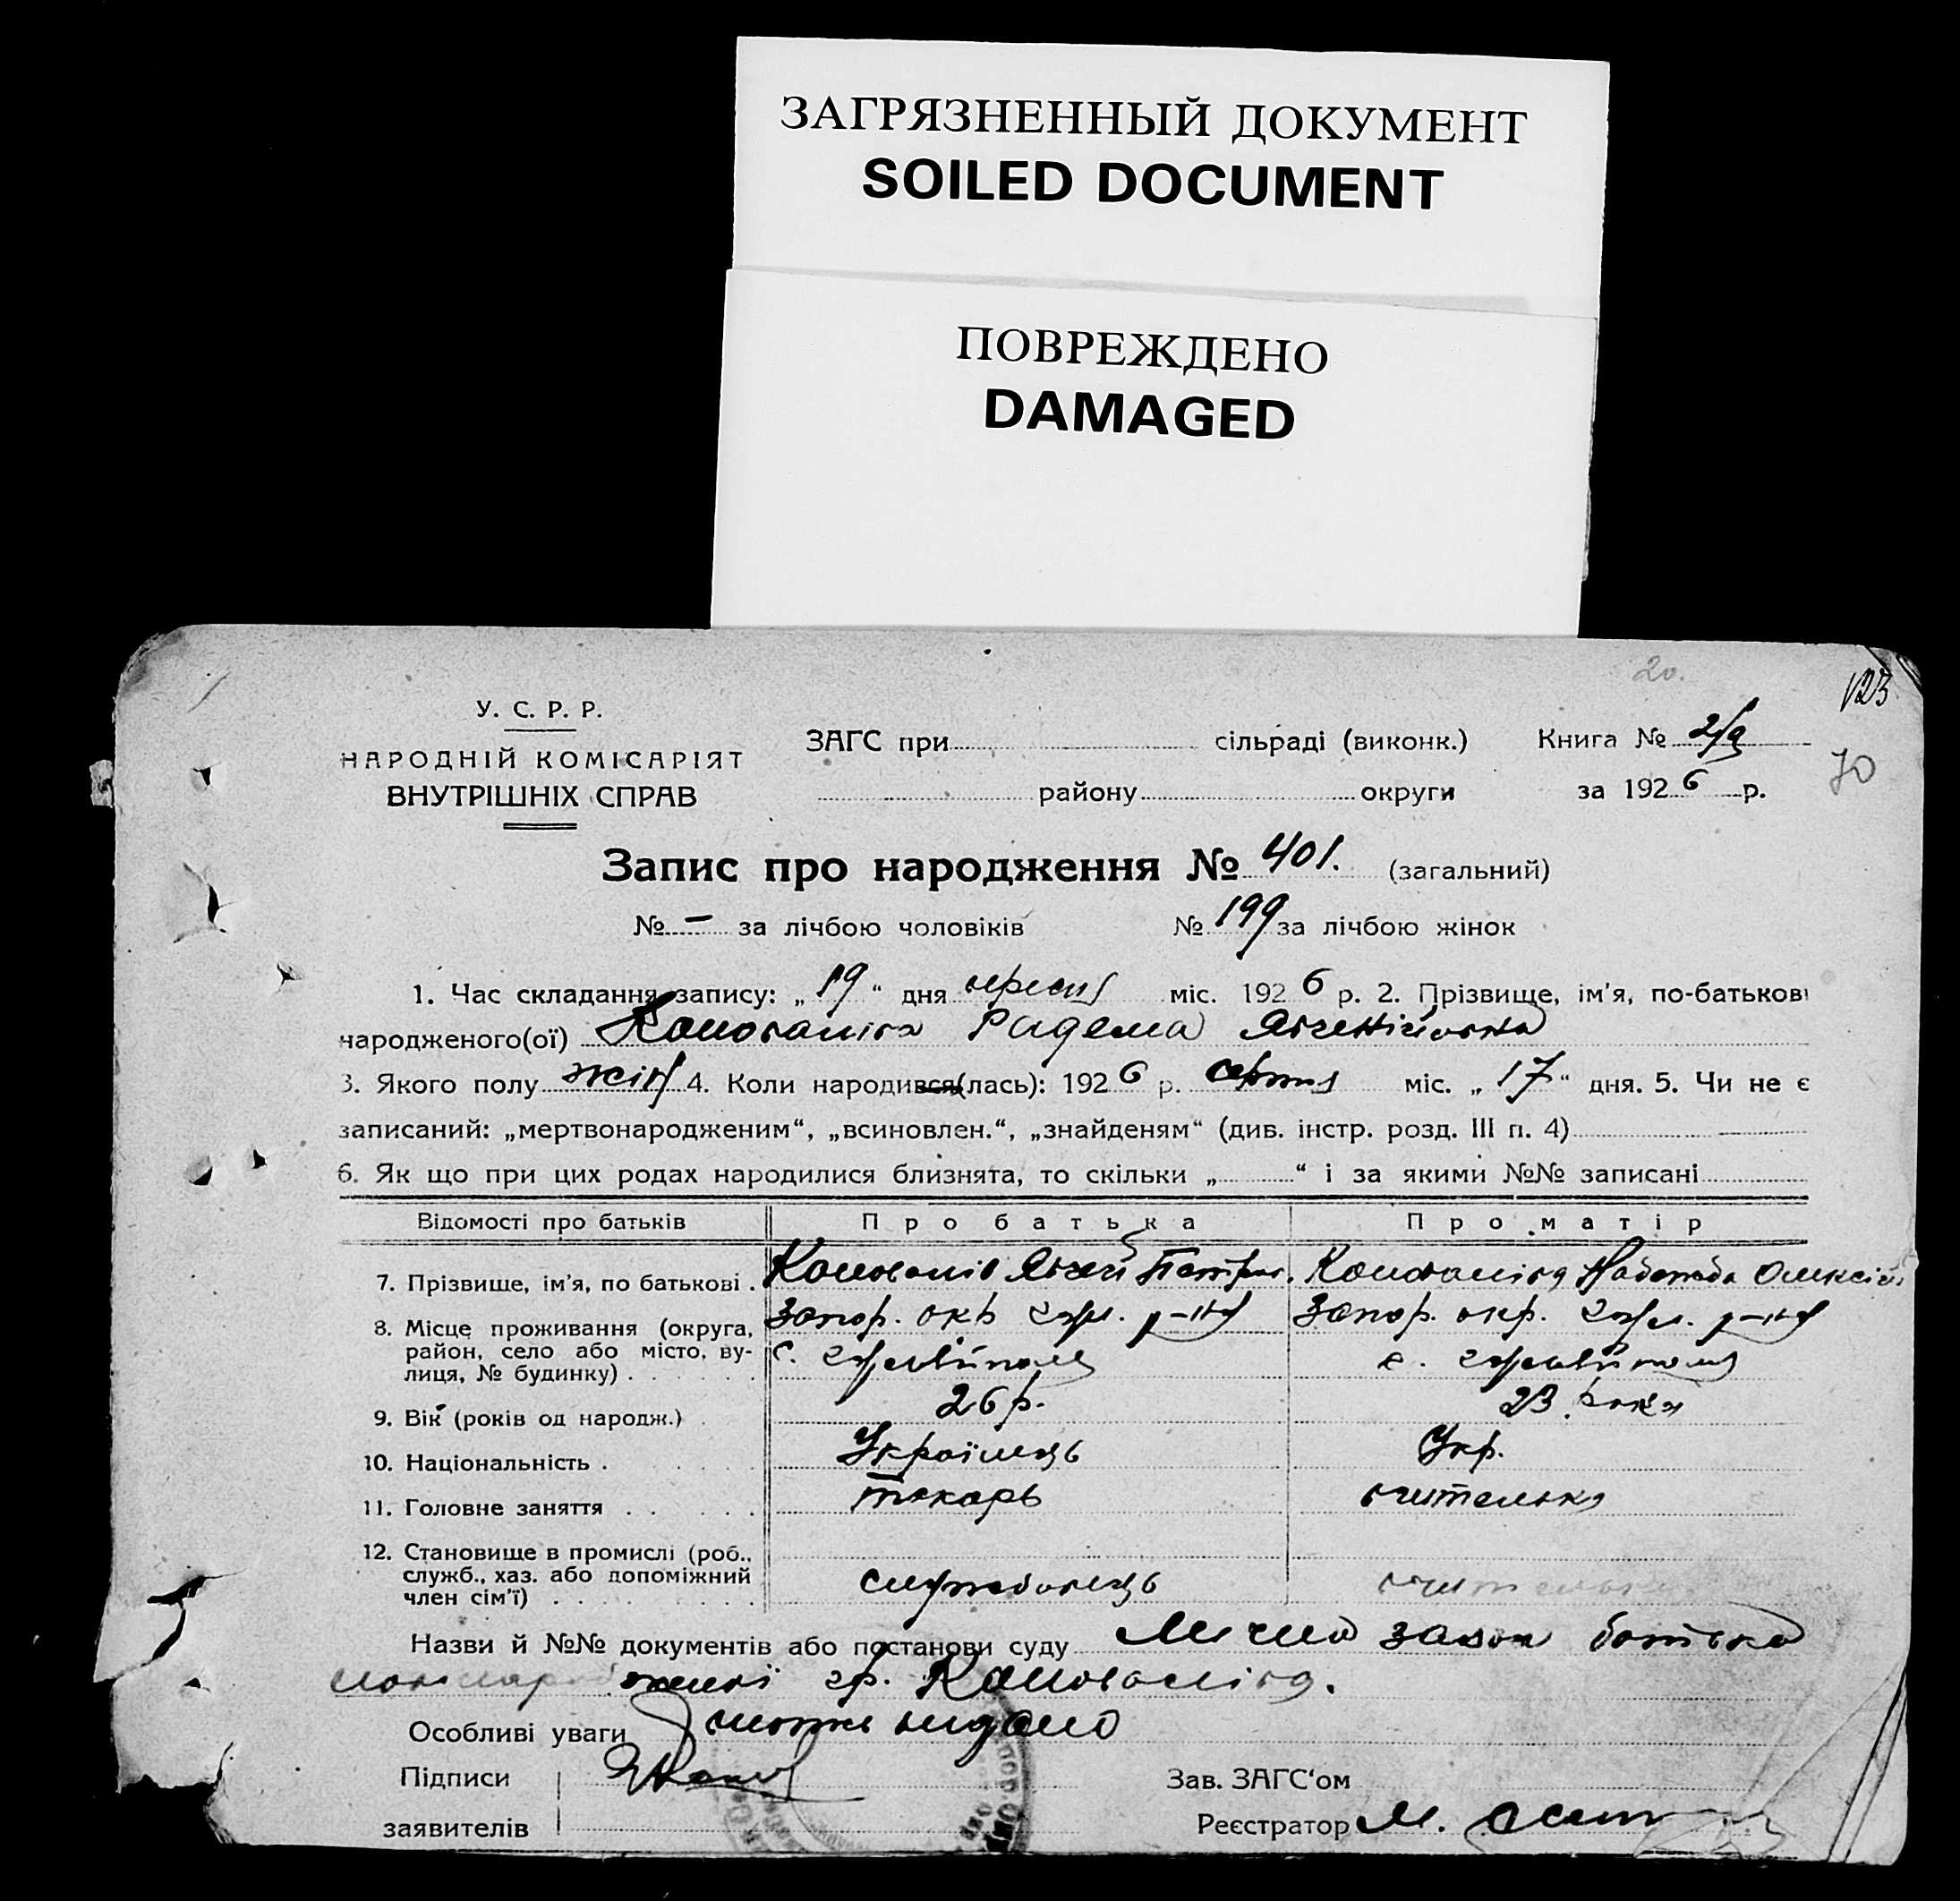 ЗАГРЯЗНЕННЫЙ ДОКУМЕНТ
SOILED DOCUMENT
ПОВРЕЖДЕНО
DAMAGED
20.
123
70
У. С. Р. Р.
НАРОДНІЙ КОМІСАРІЯТ
ВНУТРІШНІХ СПРАВ
ЗАГС при сільраді (виконк.) Книга №
району округи за 1926 р.
Запис про народження № 401. (загальний)
№ – за лічбою чоловіків № 199 за лічбою жінок
1. Час складання запису: „19“ дня вересня міс. 1926 р. 2. Прізвище, ім'я, по-батькові
народженого(ої) Коновалова Радема
3. Якого полу жін 4. Коли народився(лась): 1926 р. серпня міс. „17“ дня. 5. Чи не є
записаний: „мертвонародженим“, „всиновлен.“, „знайденям“ (див. інстр. розд. III п. 4)
6. Як що при цих родах народилися близнята, то скільки „ “ і за якими №№ записані
Відомості про батьків Про батька Про матір
7. Прізвище, ім'я, по батькові . Надежда Олексіїв
8. Місце проживання (округа, Запор. окр. р-ну Запор. окр. р-ну
район, село або місто, ву- с. с.
лиця, № будинку) . . . . . .
9. Вік (років од народж.) 26 р. 23 роки
10. Національність . Українець Укр.
11. Головне заняття . . . . . токарь вчителька
12. Становище в промислі (роб.,
служб., хаз. або допоміжний службовець вчителька
член сім'ї) . . . . . . . .
Назви й №№ документів або постанови суду заява батька
гр.
Особливі уваги видано
Підписи Зав. ЗАГС'ом
заявителів Реєстратор М.